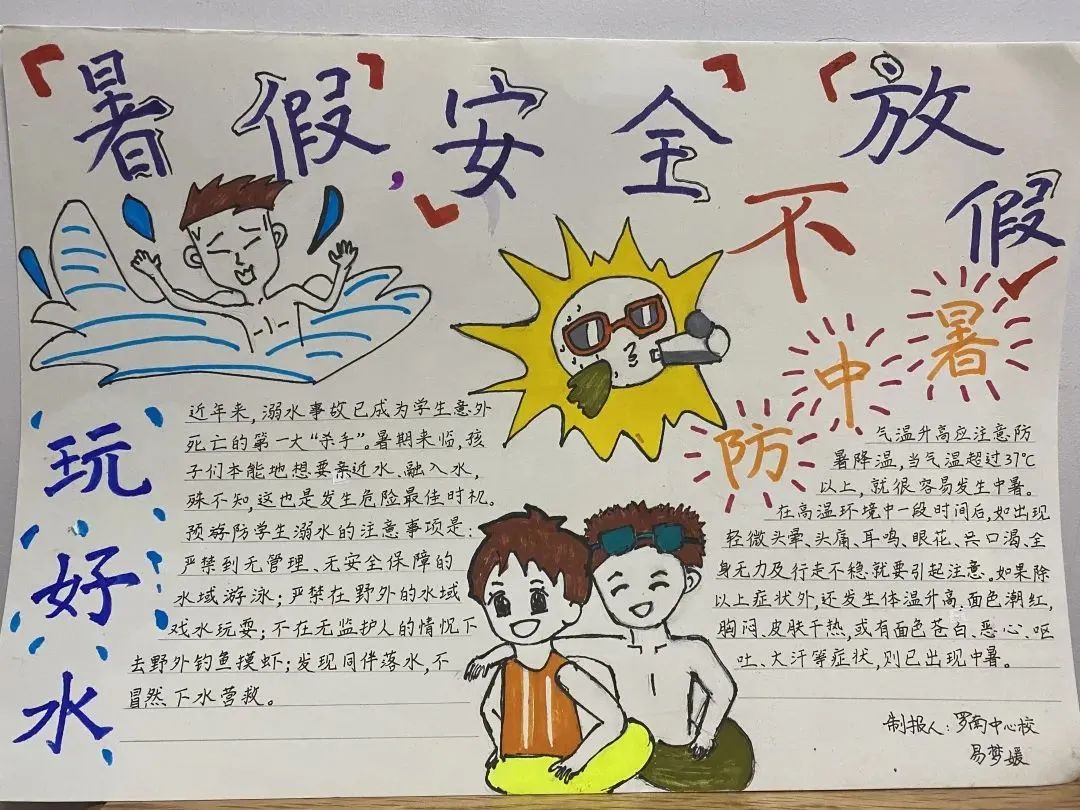 「暑假」,「安全」「放假
不
玩好水
近年来,溺水事故已成为学生意外
死亡的第一大“杀手”。暑期来临,孩
子们本能地想要亲近水、融入水,
殊不知,这也是发生危险最佳时机。
预防学生溺水的注意事项是:
严禁到无管理、无安全保障的
水域游泳;严禁在野外的水域
戏水玩耍;不在无监护人的情况下
去野外钓鱼摸虾;发现同伴落水,不
冒然下水营救。
防中暑
气温升高应注意防
暑降温,当气温超过37℃
以上,就很容易发生中暑。
在高温环境中一段时间后,如出现
轻微头晕、头痛、耳鸣、眼花、口渴、全
身无力及行走不稳就要引起注意。如果除
以上症状外,还发生体温升高、面色潮红,
胸闷、皮肤干热,或有面色苍白、恶心、呕
吐、大汗等症状,则已出现中暑。
制报人:罗南中心校
易梦媛